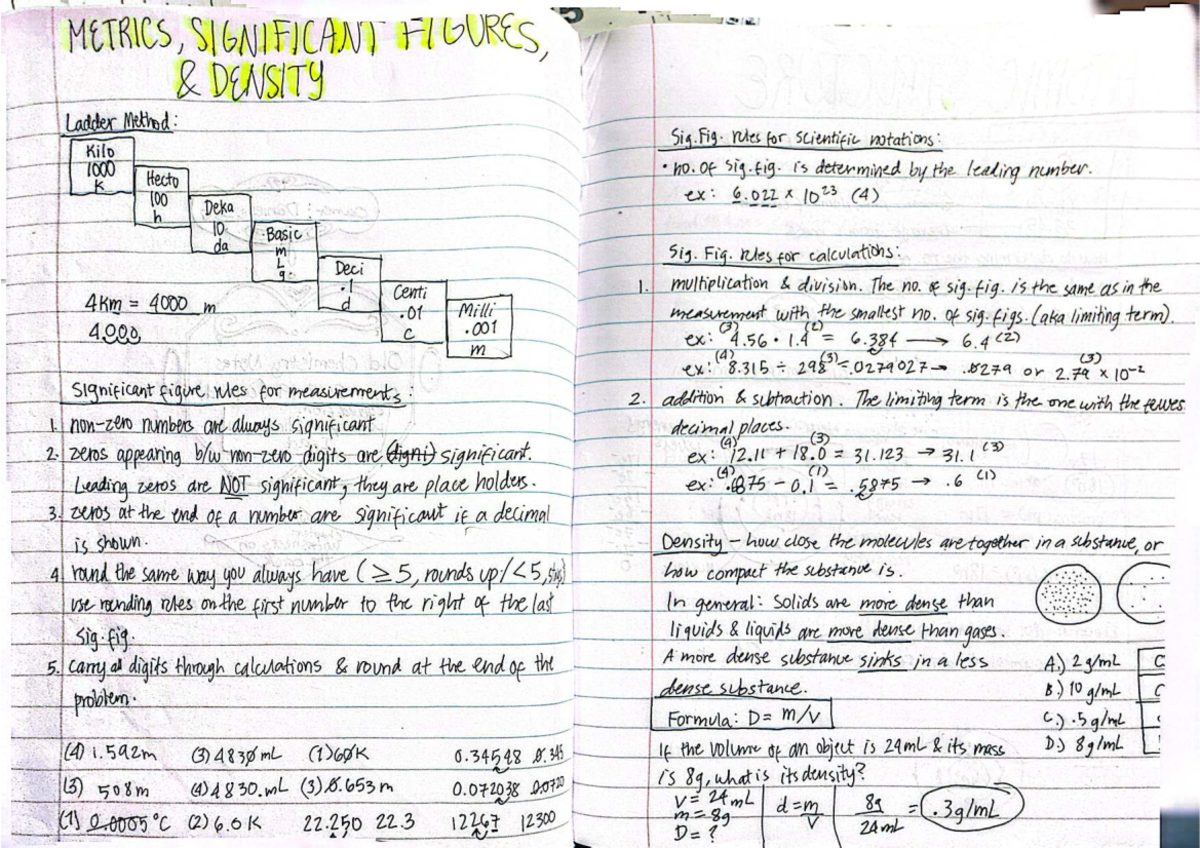 METRICS, SIGNIFICANT FIGURES,
& DENSITY
Ladder Method:
Kilo
1000
K
Hecto
100
h
Deka
10
da
Basic
m
L
g
Deci
.1
d
Centi
.01
c
Milli
.001
m
4km = 4000 m
4.000
Significant figure rules for measurements:
1. non-zero numbers are always significant
2. zeros appearing b/w non-zero digits are significant.
Leading zeros are NOT significant, they are place holders.
3. zeros at the end of a number are significant if a decimal
is shown.
4. round the same way you always have (≥5, rounds up/<5, stays)
use rounding rules on the first number to the right of the last
sig. fig.
5. carry all digits through calculations & round at the end of the
problem.
(4) 1.592m (3) 4830 mL (1) 60K 0.34548 0.345
(3) 508m (4) 4830. mL (3) 0.653m 0.072038 0.0720
(1) 0.0005°C (2) 6.0K 22.250 22.3 12267 12300
Sig. Fig. rules for scientific notations:
• no. of sig. fig. is determined by the leading number.
ex: 6.022 × 10²³ (4)
Sig. Fig. rules for calculations:
1. multiplication & division. The no. of sig. fig. is the same as in the
measurement with the smallest no. of sig. figs. (aka limiting term).
ex: (3) 4.56 · 1.4 (2) = 6.384 → 6.4 (2)
ex: (4) 8.315 ÷ 298 (3) = .0279027 → .0279 or 2.79 × 10⁻² (3)
2. addition & subtraction. The limiting term is the one with the fewes
decimal places.
ex: (4) 12.11 + 18.0 (3) = 31.123 → 31.1 (3)
ex: (4) .6875 - 0.1 (1) = .5875 → .6 (1)
Density - how close the molecules are together in a substance, or
how compact the substance is.
In general: Solids are more dense than
liquids & liquids are more dense than gases.
A more dense substance sinks in a less
dense substance.
A.) 2 g/mL
B.) 10 g/mL
C.) .5 g/mL
D.) 8 g/mL
Formula: D = m/v
If the volume of an object is 24mL & its mass
is 8g, what is its density?
V = 24 mL
m = 8g
D = ?
d = m/V
8g/24mL = .3g/mL